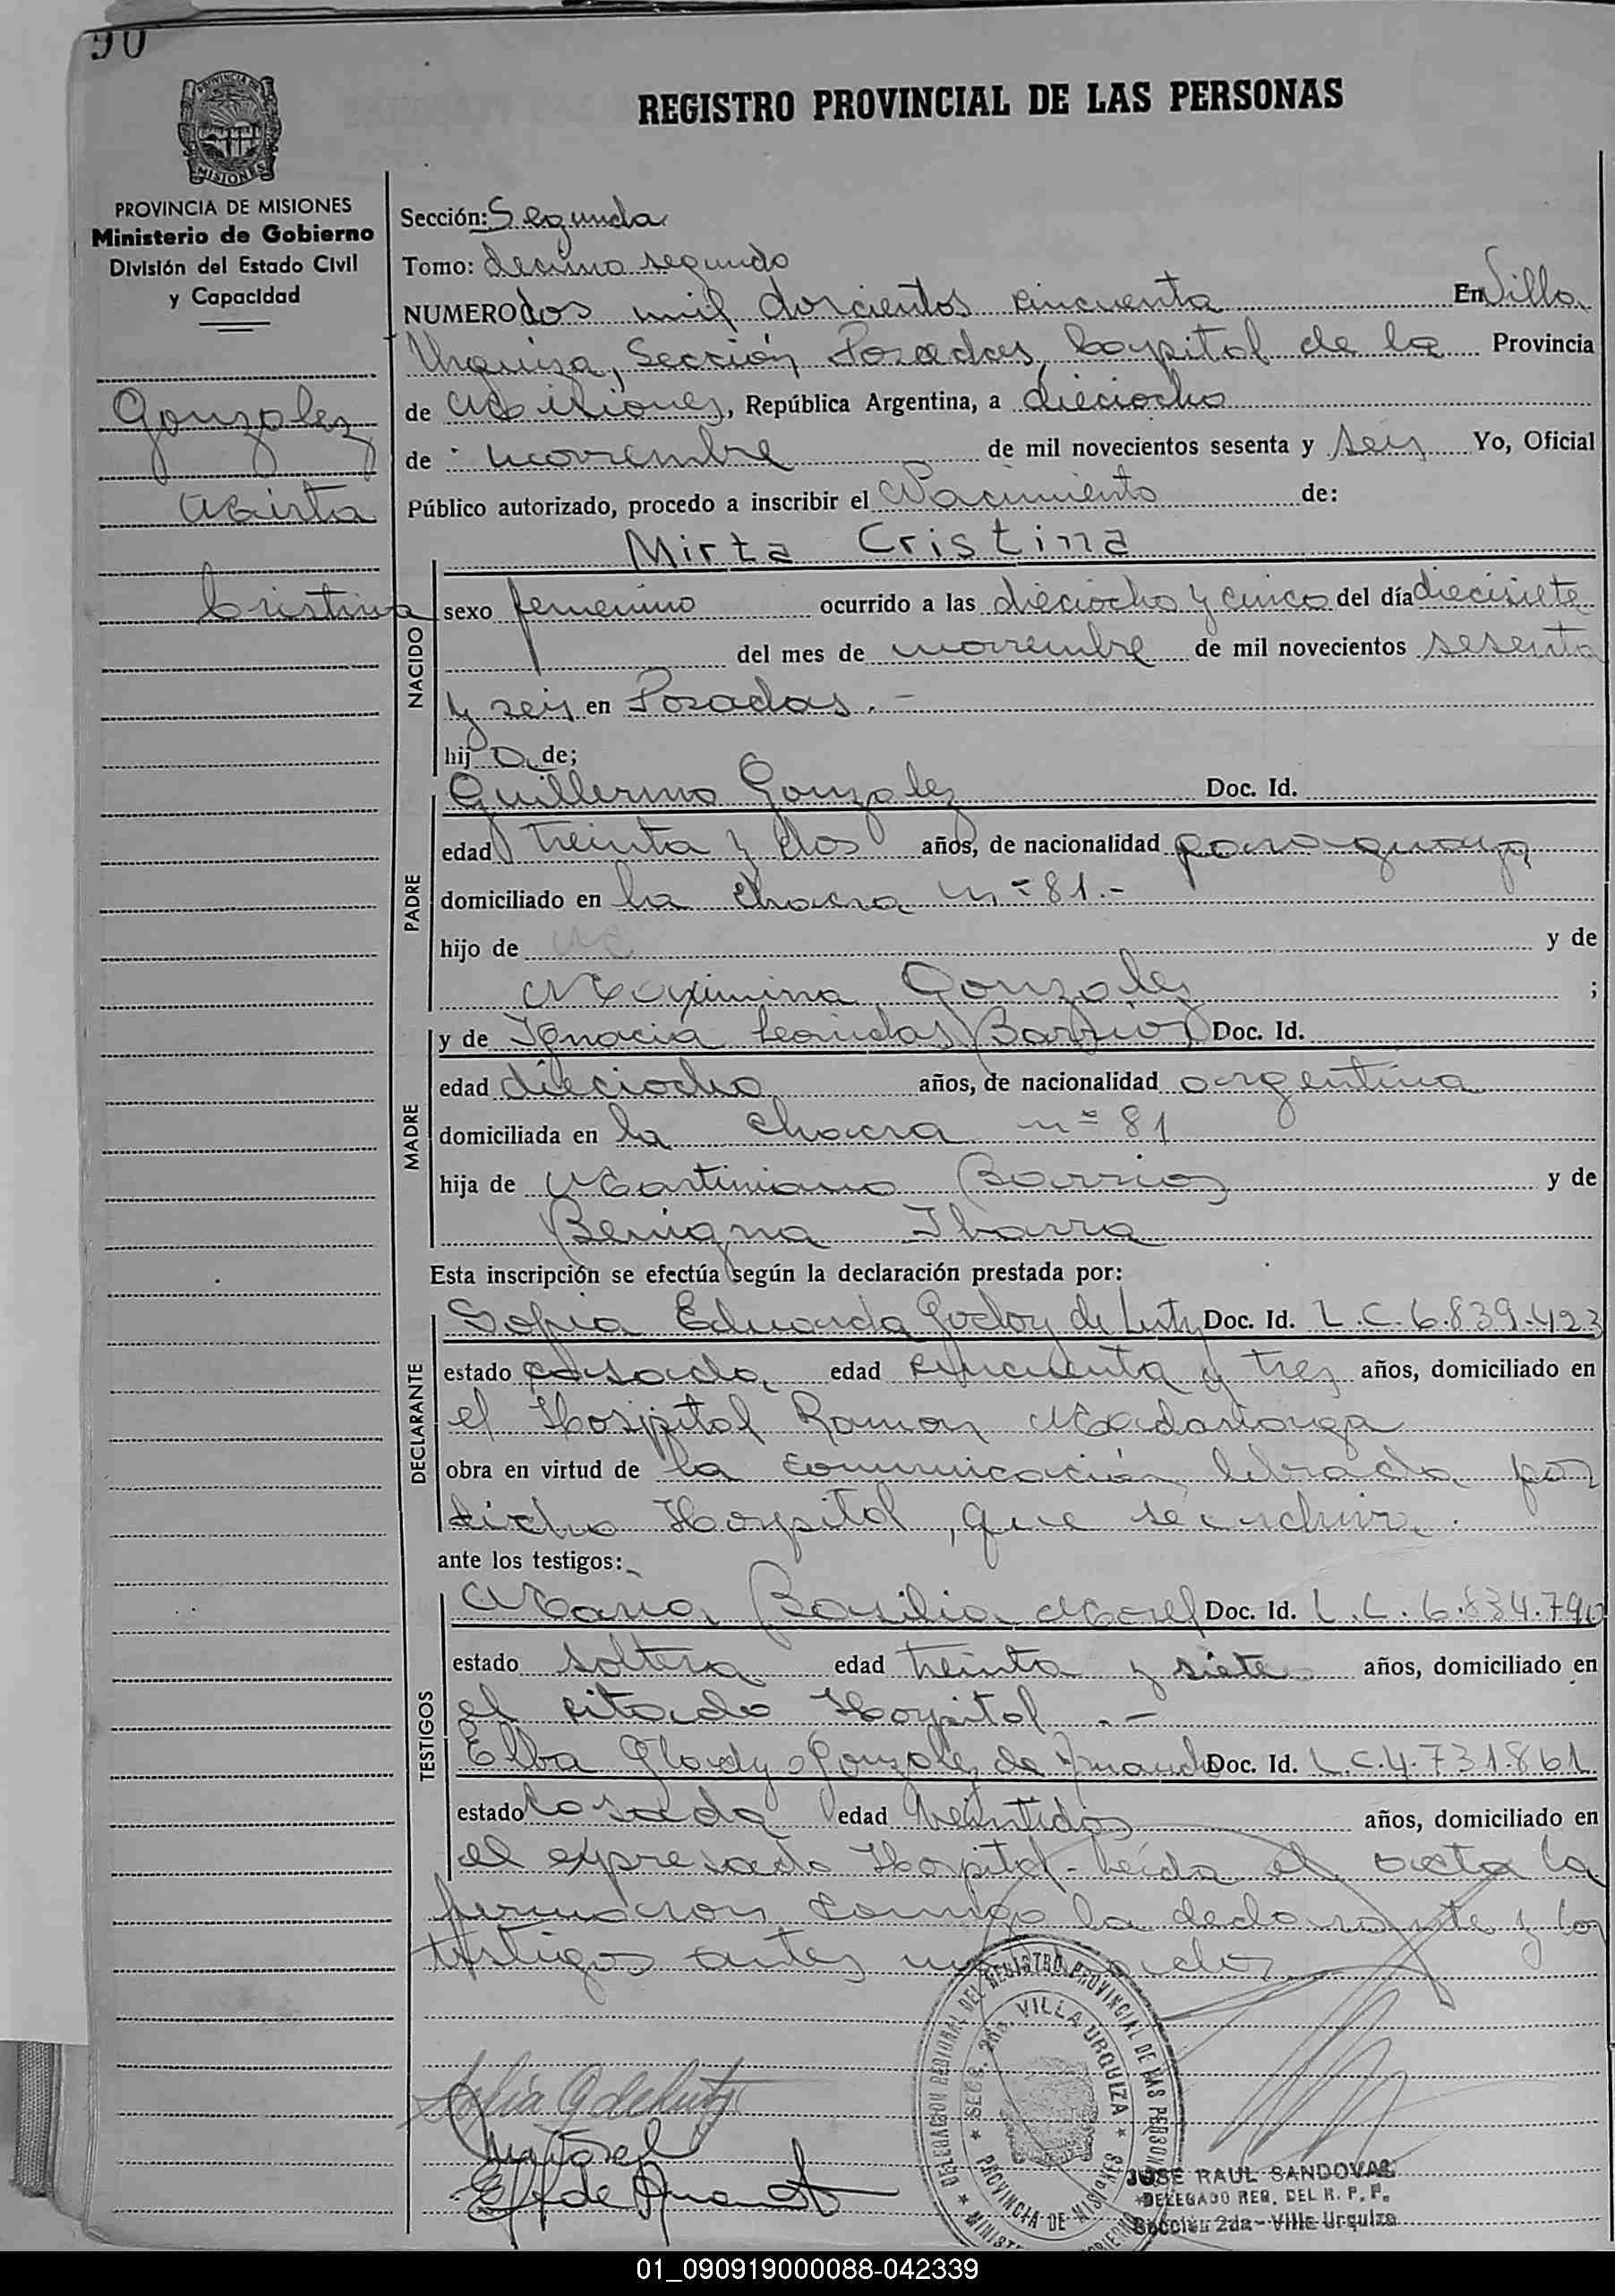 90
REGISTRO PROVINCIAL DE LAS PERSONAS
MISIONES
PROVINCIA DE MISIONES
Ministerio de Gobierno
División del Estado Civil
y Capacidad
Gonzalez
Mirta
Cristina
Sección: Segunda
Tomo: decimo segundo
NUMERO dos mil doscientos cincuenta En Villa
Urquiza, Sección Posadas, Capital de la Provincia
de Misiones, República Argentina, a dieciocho
de noviembre de mil novecientos sesenta y seis Yo, Oficial
Público autorizado, procedo a inscribir el Nacimiento de:
Mirta Cristina
NACIDO
sexo femenino ocurrido a las dieciocho y cinco del día diecisiete
del mes de noviembre de mil novecientos sesenta
y seis en Posadas.-
hij a de;
PADRE
Guillermo Gonzalez Doc. Id.
edad treinta y dos años, de nacionalidad paraguaya
domiciliado en la chacra nº 81.-
hijo de y de
Maximina Gonzalez ;
MADRE
y de Ignacia Leonidas Barrios Doc. Id.
edad dieciocho años, de nacionalidad argentina
domiciliada en la chacra nº 81
hija de Martiniano Barrios y de
Benigna Ibarra
Esta inscripción se efectúa según la declaración prestada por:
DECLARANTE
Sofia Eduarda Godoy de Lutz Doc. Id. L.C. 6.839.423
estado casada edad cincuenta y tres años, domiciliado en
el Hospital Ramon Madariaga
obra en virtud de la comunicación librada por
dicho Hospital, que se archiva.
ante los testigos:
TESTIGOS
Maria Basilia Doc. Id. L.C. 6.834.790
estado soltera edad treinta y siete años, domiciliado en
el citado Hospital.-
Elba Glady Gonzalez de Doc. Id. L.C. 4.731.861
estado Casada edad Veintidos años, domiciliado en
el expresado Hospital- Leída el acta la
firmaron conmigo la declarante y los
testigos antes
Sofia G de Lutz
DELEGACION REGIONAL DEL REGISTRO PROVINCIAL DE LAS PERSONAS
SECC. 2da. VILLA URQUIZA
PROVINCIA DE MISIONES
JOSE RAUL SANDOVAL
DELEGADO REG. DEL R. P. P.
Sección 2da - Villa Urquiza
01_090919000088-042339